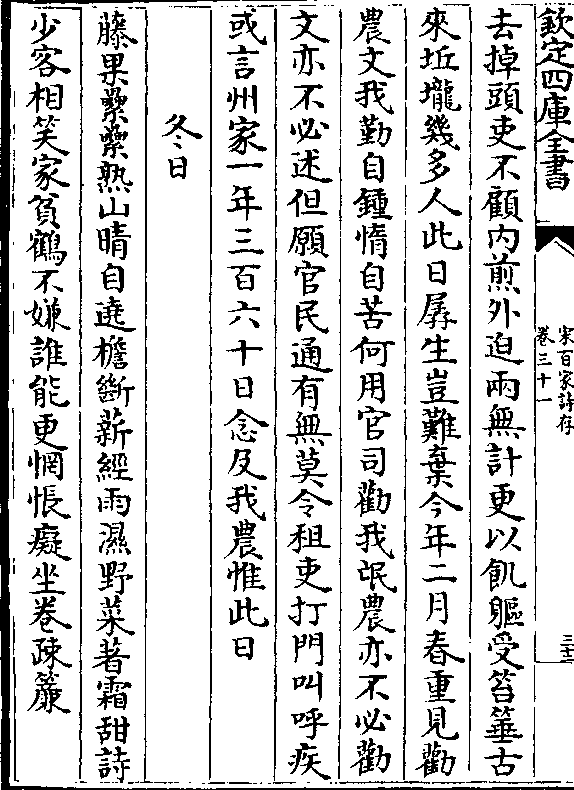 欽定四庫全書
宋百家詩存
卷三十一
三十二
去掉頭吏不顧内煎外迫兩無計更以飢軀受笞箠古
來坵壠幾多人此日孱生豈難棄今年二月春重見勸
農文我勤自鍾惰自苦何用官司勸我氓農亦不必勸
文亦不必述但願官民通有無莫令租吏打門叫呼疾
或言州家一年三百六十日念及我農惟此日
冬日
藤果纍纍熟山晴自遶檐斷薪經雨濕野菜著霜甜詩
少客相笑家貧鶴不嫌誰能更惘悵癡坐巻疎簾